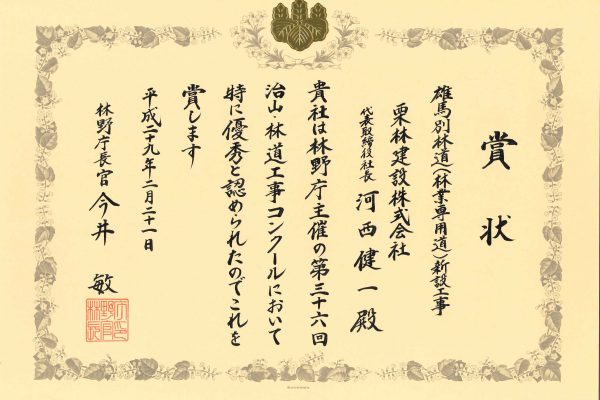 賞状
雄馬別林道(林業専用道)新設工事
栗林建設株式会社
代表取締役社長 河西健一殿
貴社は林野庁主催の第三十六回
治山・林道工事コンクールにおいて
特に優秀と認められたのでこれを
賞します
平成二十九年二月二十一日
林野庁長官 今井 敏